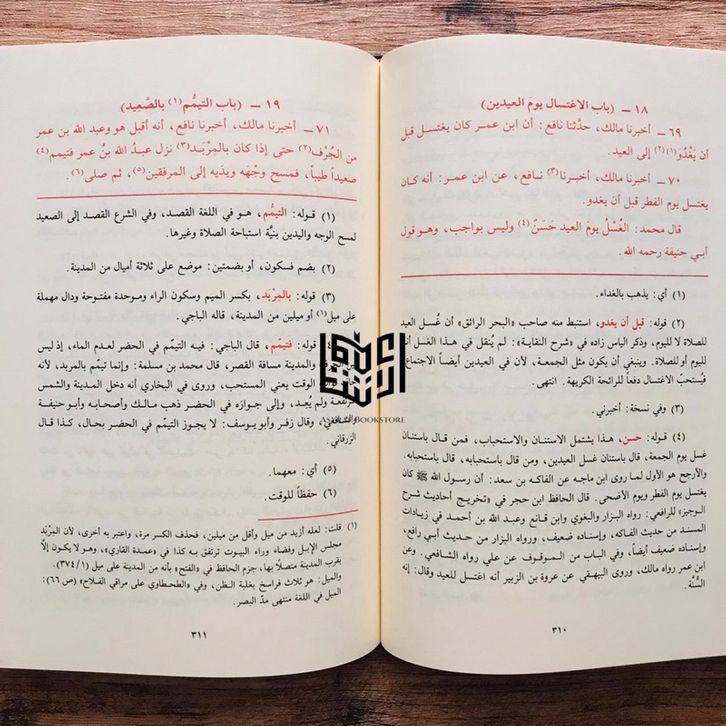 ١٨ ــ (باب الاغتسال يومَ العيدين)
٦٩ ــ أخبرنا مالك، حدَّثنا نافع: أن ابن عمر كان يغتسل قبل
أن يَغْدُوَ(١)(٢) إلى العيد.
٧٠ ــ أخبرنا مالك، أخبرنا(٣) نافع، عن ابن عمر: أنه كان
يغتسل يوم الفطر قبل أن يغدو.
قال محمد: الغُسْلُ يومَ العيد حَسَنٌ(٤) وليس بواجب، وهو قول
أبي حنيفة رحمه الله.
(١) أي: يذهب بالغداء.
(٢) قوله: قبل أن يغدو، استنبط منه صاحب «البحر الرائق» أن غُسل العيد
للصلاة لا لليوم، وذكر الياس زاده في «شرح النقاية»: لم يُنقل في هذا الغسل أنه
لليوم أو للصلاة. وينبغي أن يكون مثل الجمعة، لأن في العيدين أيضاً الاجتماع
فيُستحبّ الاغتسال دفعاً للرائحة الكريهة. انتهى.
(٣) وفي نسخة: أخبرني.
(٤) قوله: حسن، هذا يشتمل الاستنان والاستحباب، فمن قال باستنان
غسل يوم الجمعة، قال باستنان غسل العيدين، ومن قال باستحبابه، قال باستحبابه.
والأرجح هو الأول لما روى ابن ماجه عن الفاكه بن سعد: أن رسول الله ﷺ كان
يغتسل يوم الفطر ويوم الأضحى. قال الحافظ ابن حجر في «تخريج أحاديث شرح
الوجيز» للرافعي: رواه البزار والبغوي وابن قانع وعبد الله بن أحمد في زيادات
المسند من حديث الفاكه، وإسناده ضعيف، ورواه البزار من حديث أبي رافع،
وإسناده ضعيف أيضاً، وفي الباب من الموقوف عن علي رواه الشافعي. وعن
ابن عمر رواه مالك، وروى البيهقي عن عروة بن الزبير أنه اغتسل للعيد وقال: إنه
السُّنَّة.
٣١٠
١٩ ــ (باب التيمُّم(١) بالصَّعِيد)
٧١ ــ أخبرنا مالك، أخبرنا نافع، أنه أقبل هو وعبد الله بن عمر
من الجُرْف(٢) حتى إذا كان بالمِرْبَد(٣) نزل عبدُ الله بنُ عمر فتيمم(٤)
صعيداً طيباً، فمسح وجْهَه ويديه إلى المرفقين(٥)، ثم صلى(٦).
(١) قوله: التيمُّم، هو في اللغة القصد، وفي الشرع القصد إلى الصعيد
لمسح الوجه واليدين بنيَّة استباحة الصلاة وغيرها.
(٢) بضم فسكون، أو بضمتين: موضع على ثلاثة أميال من المدينة.
(٣) قوله: بالمِرْبَد، بكسر الميم وسكون الراء وموحدة مفتوحة ودال مهملة
على ميل(١) أو ميلين من المدينة، قاله الباجي.
قوله: فتيمّم، قال الباجي: فيه التيمّم في الحضر لعدم الماء، إذ ليس
مسافة القصر، قال محمد بن مسلمة: وإنما تيمّم بالمربد، لأنه
الوقت يعني المستحب، وروى في البخاري أنه دخل المدينة والشمس
ولم يُعِد، وإلى جوازه في الحضر ذهب مالك وأصحابه وأبو حنيفة
وقال زفر وأبو يوسف: لا يجوز التيمّم في الحضر بحال، كذا قال
الزرقاني.
(٥) أي: معهما.
(٦) حفظاً للوقت.
(١) قلت: لعله أزيد من ميل وأقل من ميلين، فحذف الكسر مرة، واعتبر به أخرى، لأن المِرْبَد
مجلس الإبل وفضاء وراء البيوت ترتفق به كذا في «عمدة القاري»، وهو لا يكون إلَّا
بقرب المدينة متصلًا بها، جزم الحافظ في «الفتح» بأنه من المدينة على ميل (٣٧٤/١)
والميل: هو ثلاث فراسخ بغلبة الظن، وفي «الطحطاوي على مراقي الفلاح» (ص ٦٦):
الميل في اللغة منتهى مدّ البصر.
٣١١
BOOKSTORE